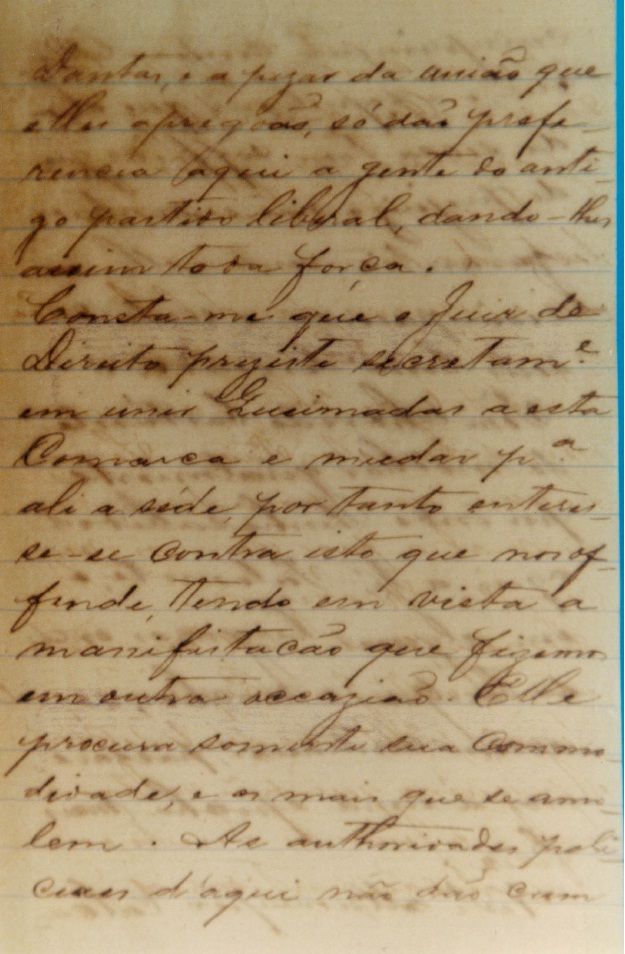 Dantas, e a pezar da união que
elles apregoão, só dão prefe-
rencia aqui a gente do anti-
go partido liberal, dando-lhes
assim toda força.
Consta-me que o Juiz de
Direito prejiste secretam.e
em unir Queimadas a esta
Comarca e mudar p.a
ali a séde, por tanto enteres-
se-se contra isto que nos of-
fende, tendo em vista a
manifestacão que fizemos
em outra occazião. Elle
procura somente sua Commo-
didade, e os mais que se amo-
lem. As authoridades poli-
ciaes d'aqui não dão cum